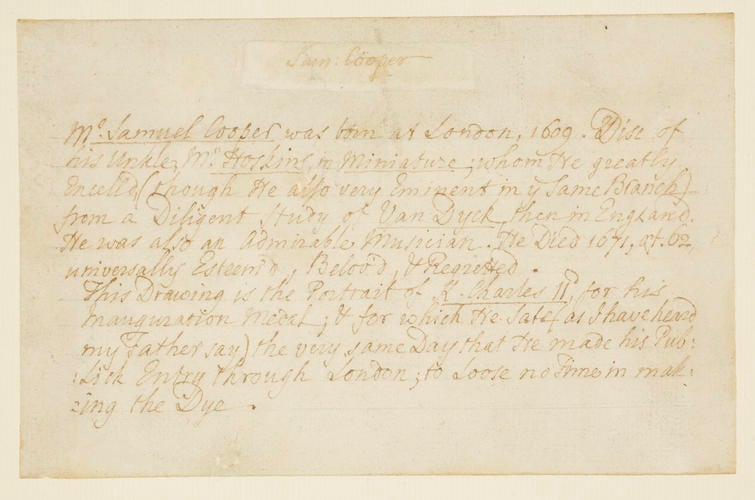 Sam: Cooper
Mr. Samuel Cooper was born at London, 1609. Disc of
his Unkle, Mr Hoskins, in Miniature; whom He greatly
Excell'd (though He also very Eminent in ye same Branch)
from a Diligent Study of Van Dyck, then in England.
He was also an Admirable Musician. He Died 1671, æt. 62,
universally Esteem'd, Belov'd, & Regretted.
This Drawing is the Portrait of K. Charles IId, for his
Inauguration Medal; & for which He Sate (as I have heard
my Father say) the very same Day that He made his Pub:
:lick Entry through London; to Loose no Time in mak:
:ing the Dye.